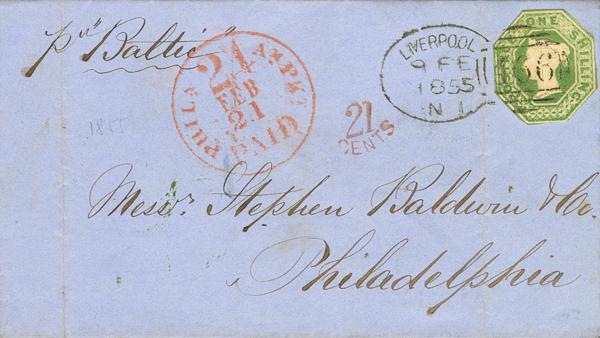 pr "Baltic"
PHILA. AM. PKT.
24
FEB
21
PAID
21
CENTS
LIVERPOOL
9 FE
1855
N 1
ONE SHILLING
466
1855
Messrs. Stephen Baldwin & Co.
Philadelphia